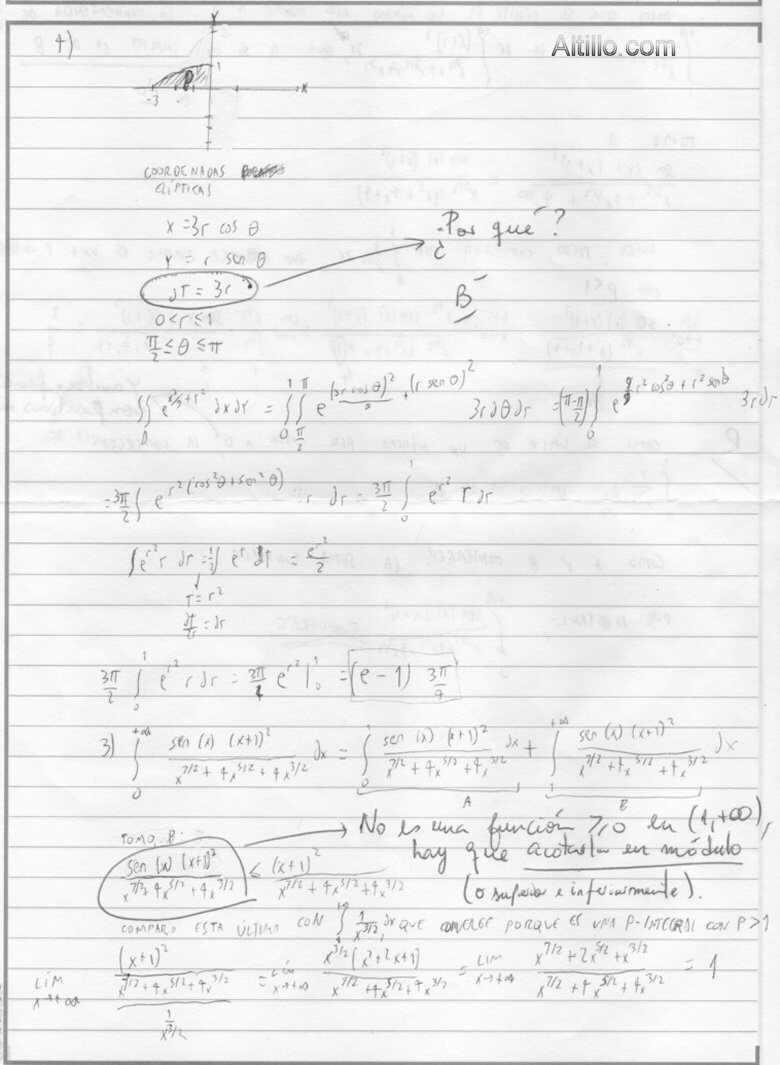 Altillo.com
4)
Y
1
D
X
-3
COORDENADAS
ELÍPTICAS
x = 3r cos θ
Y = r sen θ
JT = 3r
¿Por qué?
B-
0 < r ≤ 1
π/2 ≤ θ ≤ π
∬_D e^(x²/9+Y²) dx dY = ∫_0^1 ∫_{π/2}^π e^((3r cos θ)²/9 + (r sen θ)²) 3r dθ dr = (π-π/2) ∫_0^1 e^(9/9 r² cos²θ + r² sen²θ) 3r dr
= 3π/2 ∫ e^(r²(cos²θ+sen²θ)) r dr = 3π/2 ∫_0^1 e^(r²) r dr
∫ e^(r²) r dr = 1/2 ∫ e^T dT = e^(r²)/2
T = r²
dT/2r = dr
3π/2 ∫_0^1 e^(r²) r dr = 3π/4 e^(r²) |_0^1 = (e - 1) 3π/4
3) ∫_0^{+∞} sen (x) (x+1)² / (x^(7/2) + 4x^(5/2) + 4x^(3/2)) dx = ∫_0^1 sen (x) (x+1)² / (x^(7/2) + 4x^(5/2) + 4x^(3/2)) dx + ∫_1^{+∞} sen (x) (x+1)² / (x^(7/2) + 4x^(5/2) + 4x^(3/2)) dx
A B
TOMO B:
sen (x) (x+1)² / (x^(7/2) + 4x^(5/2) + 4x^(3/2)) ≤ (x+1)² / (x^(7/2) + 4x^(5/2) + 4x^(3/2))
No es una función ≥ 0 en (1,+∞),
hay que acotarla en módulo
(o superior e inferiormente).
COMPARO ESTA ÚLTIMA CON ∫_1^{+∞} 1/x^(3/2) dx QUE CONVERGE PORQUE ES UNA P-INTEGRAL CON P > 1
LIM x→+∞ ((x+1)² / (x^(7/2) + 4x^(5/2) + 4x^(3/2))) / (1/x^(3/2)) = LIM x→+∞ x^(3/2) (x²+2x+1) / (x^(7/2) + 4x^(5/2) + 4x^(3/2)) = LIM x→+∞ (x^(7/2) + 2x^(5/2) + x^(3/2)) / (x^(7/2) + 4x^(5/2) + 4x^(3/2)) = 1